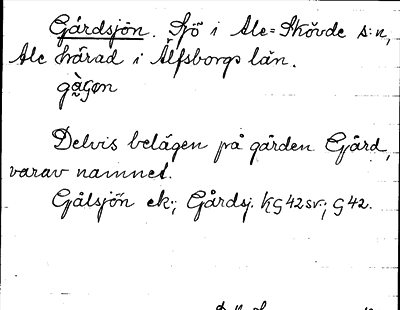 Gårdsjön. Sjö i Ale-Skövde s:n,
Ale härad i Älfsborgs län.
Delvis belägen på gården Gjärd,
varav namnet.
Gålsjön ek; Gårdsj. KG42sv; G42.